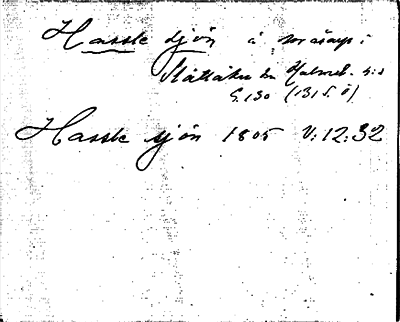 Hassle sjön å
Slättåkra sn Halmst. h:d
G.130 (131 S. Ö)
Hassle sjön 1805 V:12:32